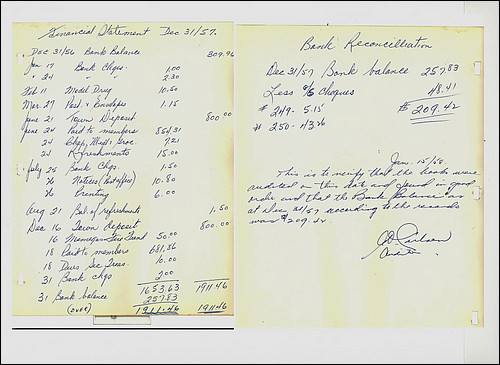 Financial Statement Dec 31/57.
Dec 31/56 Bank Balance 309.96
Jan 17 Bank Chgs. 1.00
" 24 " " 2.30
Feb 11 Model Drug 10.50
Mar. 27 Post. & Envelopes 1.15
June 21 Town Deposit 800.00
June 24 Paid to members 854.31
24 Chgs, Meat & Groc. 7.21
24 Refreshments 15.00
July 25 Bank Chgs. 1.50
26 Notices (Post office) 10.80
26 Printing 6.00
Aug 21 Bal. of refreshments 1.50
Dec 16 Town deposit 800.00
16 Fire Fund 50.00
18 Paid to members 681.86
18 Dues Sec. Treas. 10.00
31 Bank chgs 2.00
1653.63 1911.46
31 Bank balance 257.83
(over) 1911.46 1911.46
Bank Reconcilliation
Dec 31/57 Bank balance 257.83
Less o/s Cheques 48.41
# 249 - 5.15 $209.42
# 250 - 43.26
Jan. 15/58.
This is to verify that the books were
audited on this date and found in good
order and that the Bank Balance as
at Dec 31/57 according to the records
was $209.42
Auditor.